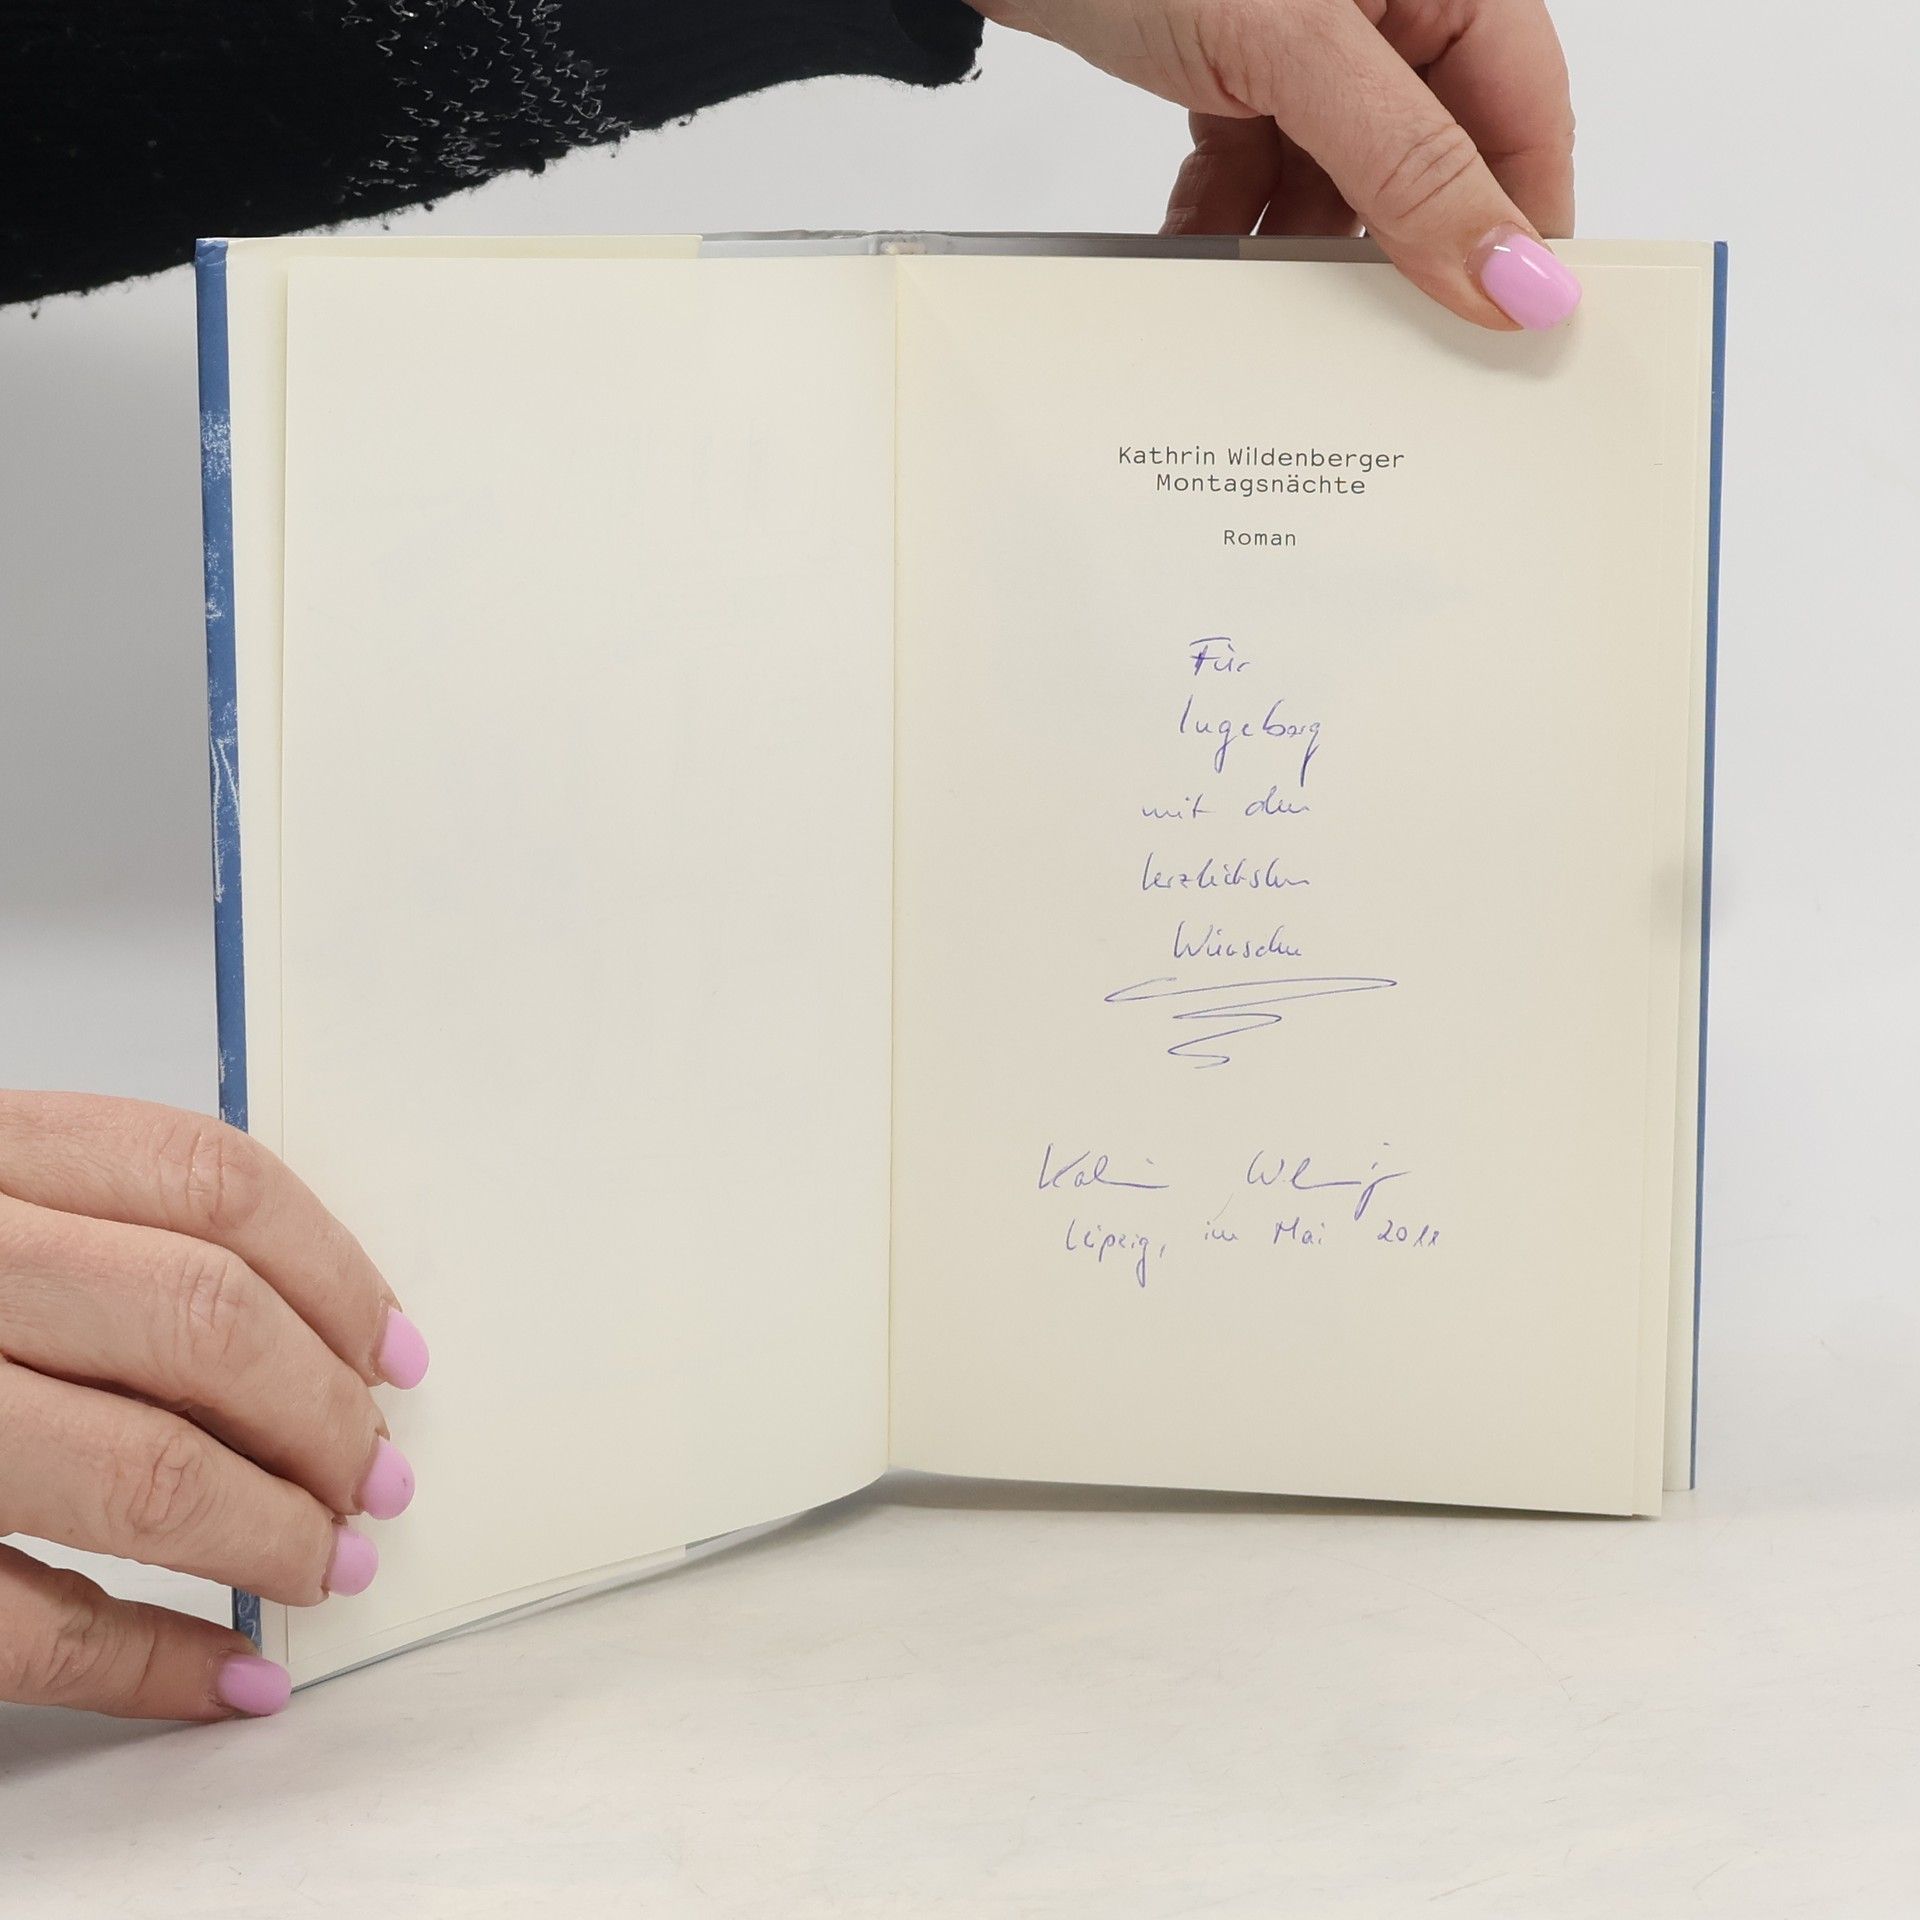 Kathrin Wildenberger
Montagsnächte
Roman
Für
Ingeborg
mit den
herzlichsten
Wünschen
Kathrin Wildenberger
Leipzig, im Mai 2011